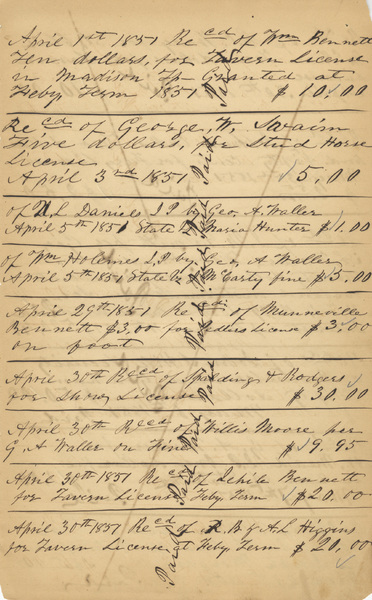 April 1st 1851 Recd of Wm Bennett
Ten dollars, for Tavern License
in Madison Tp Granted at
Feby Term 1851 $10.00
Paid
Recd of George, W. Swaim
Five dollars, for Stud Horse
License
April 3rd 1851 $5.00
Paid
of L Daniels J P by Geo. A. Waller
April 5th 1851 State Vs Maria Hunter $1.00
Paid
of Wm Holemes J, P by Geo, A Waller
April 5th 1851 State Vs McCarty fine $5.00
Paid
April 29th 1851 Recd. of Munneville
Bennett $3,00 for Pedlers License $3.00
on foot
Paid
April 30th Recd of Spaldings & Rodgers
for Show License $30.00
Paid
April 30th Recd of Willis Moore per
G A Waller on Fine $19.95
Paid
April 30th 1851 Recd of Bennett
for Tavern License Feby Term $20.00
Paid
April 30th 1851 Recd of R. B & A. L Higgins
for Tavern License at Feby Term $20,00
Paid